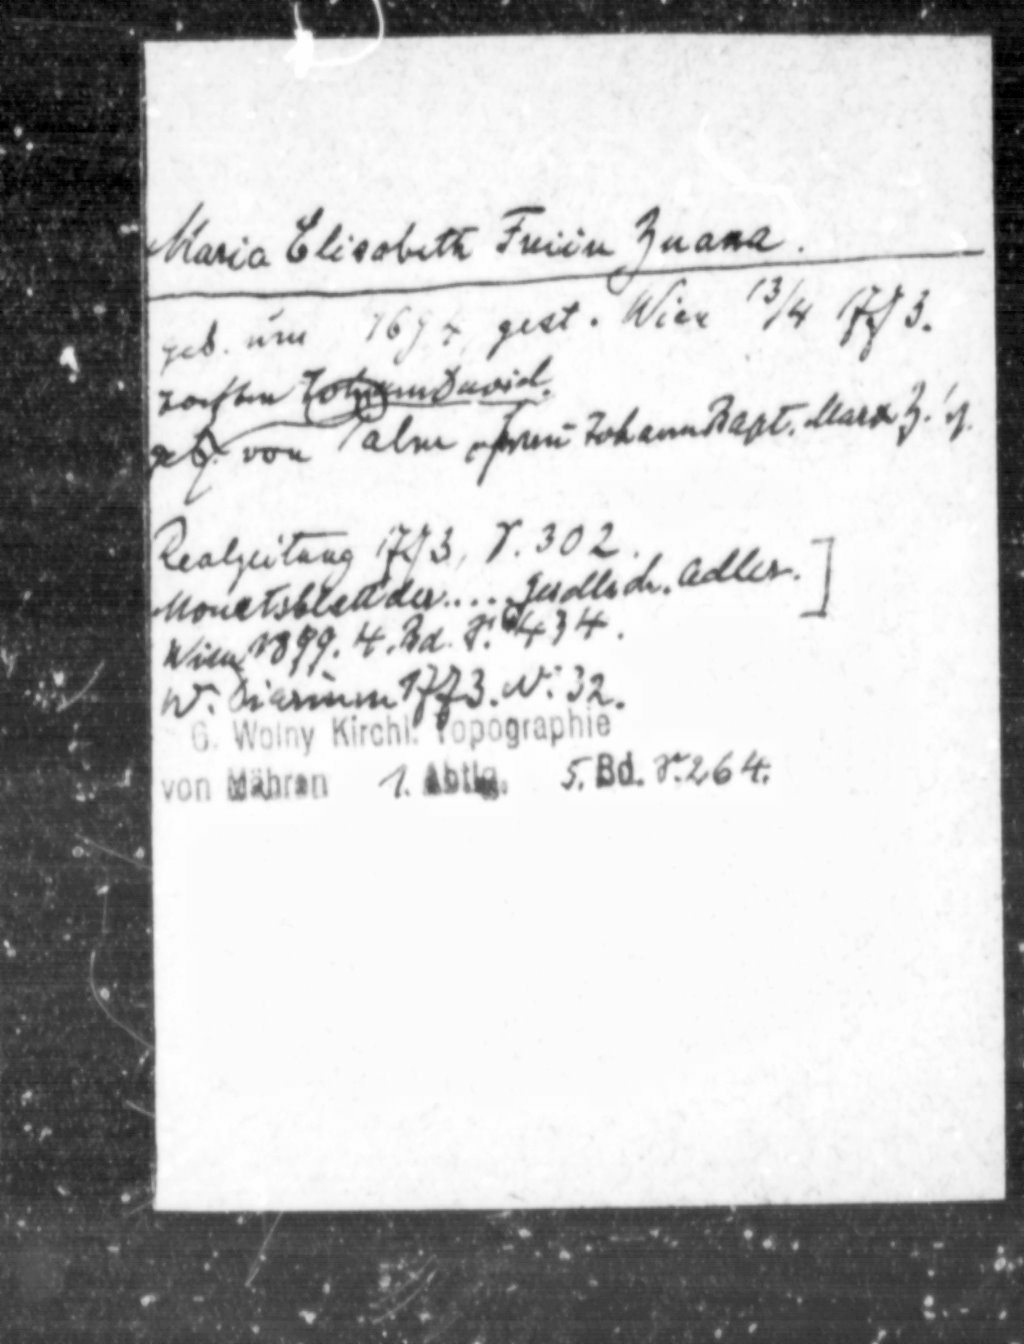 Maria Elisabeth Freiin Zuana.
geb. um 1694 gest. Wien 13/4 1773.
Tochter Johann David.
geb. von Palm Johann Bapt. Marx Z.
Realzeitung 1773, S. 302.
Monatsblatt der.... Gesellsch. Adler.]
Wien 1899. 4. Bd. S. 434.
W. Diarium 1773. N: 32.
G. Wolny Kirchl. Topographie
von Mähren 1. Abtlg. 5. Bd. S. 264.